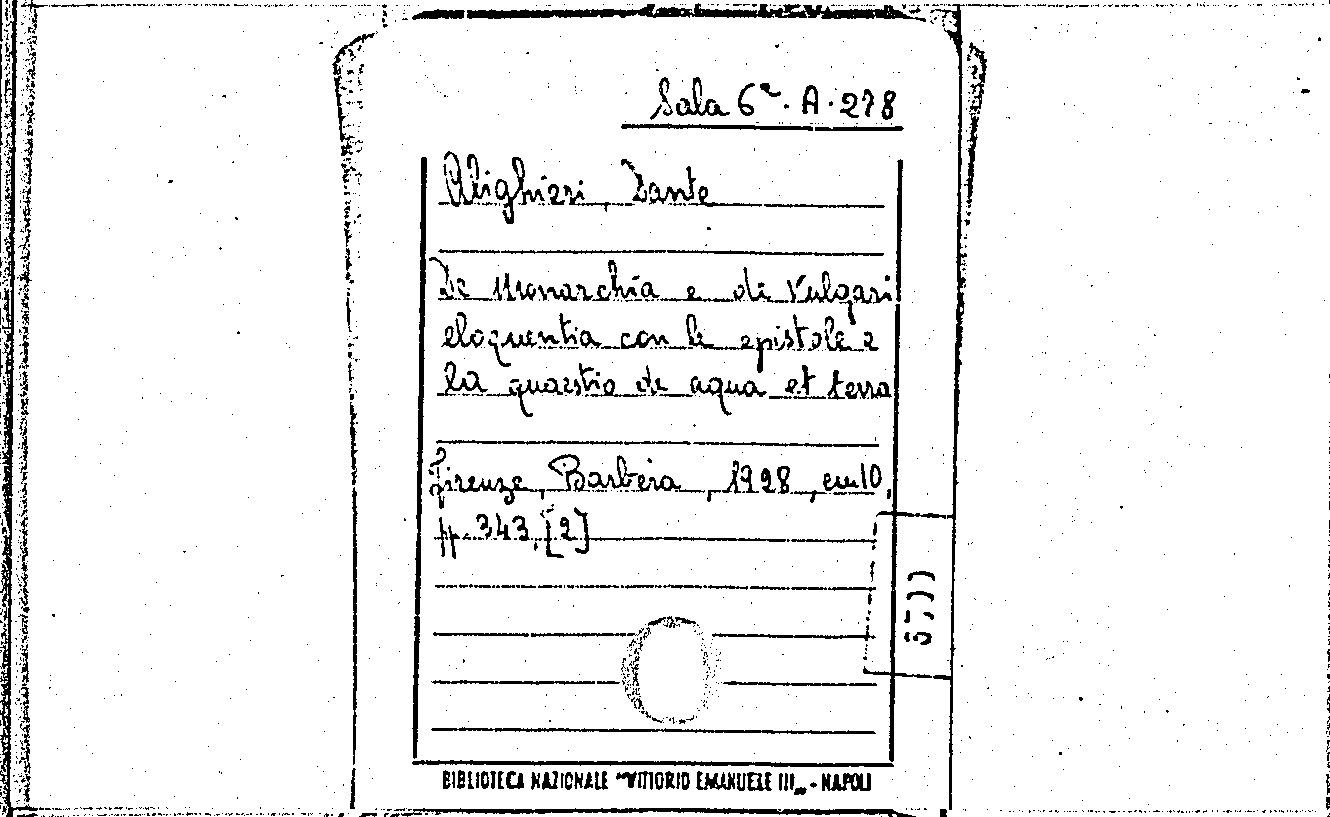 Sala 6ª. A. 278
Alighieri, Dante
De Monarchia e di Vulgari
eloquentia con le epistole e
la quaestio de aqua et terra
Firenze, Barbèra, 1928, cm 10,
pp. 343, [2]
BIBLIOTECA NAZIONALE "VITTORIO EMANUELE III„ - NAPOLI